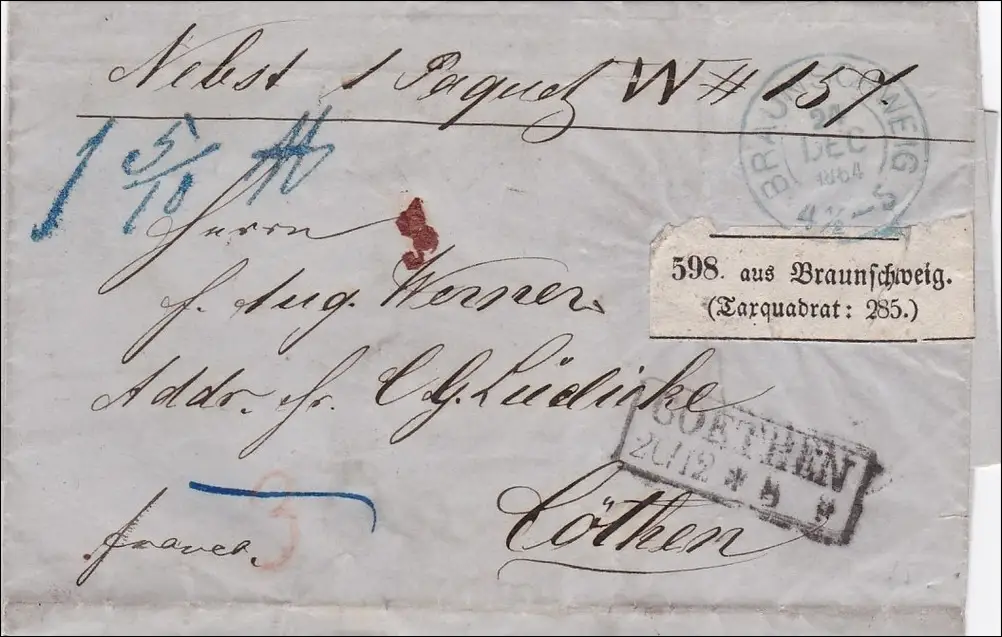 Nebst 1 Paquet W # 157.
BRAUNSCHWEIG
DEC
1864
1 5/10 ℔
Herrn
598. aus Braunſchweig.
(Taxquadrat: 285.)
f. Aug. Werner
Addr. Hr. C. G. Lüdicke
COETHEN
20/12 * 5 *
Cöthen
franco.
3